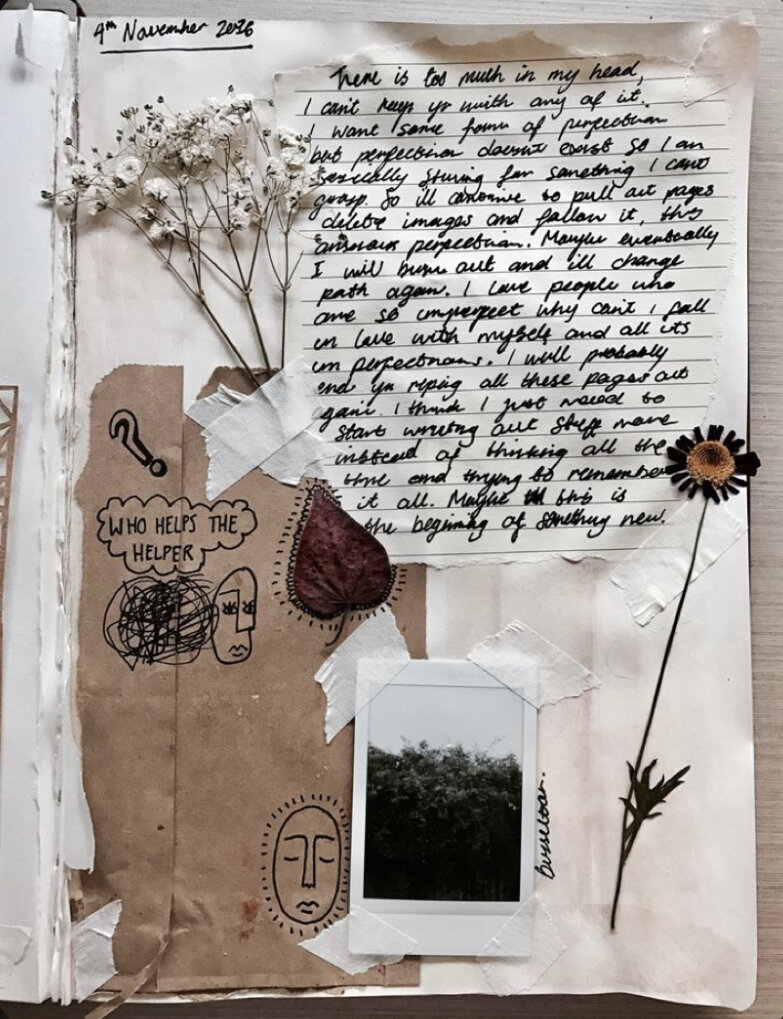 4th November 2016
There is too much in my head,
I can't keep up with any of it.
I want some form of perfection
but perfection doesn't exist so I am
basically striving for something I can't
grasp. So ill continue to pull out pages
delete images and follow it, this
perfection. Maybe eventually
I will burn out and ill change
path again. I love people who
are so imperfect why can't i fall
in love with myself and all its
imperfections. I will probably
end up riping all these pages out
again. I think I just need to
start writing out stuff more
instead of thinking all the
time and trying to remember
it all. Maybe this is
the beginning of something new.
?
WHO HELPS THE
HELPER
Busselton.